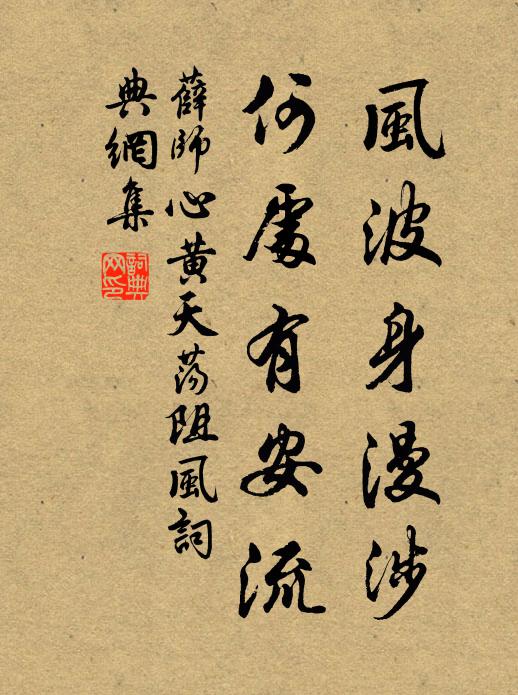 風波身漫涉
何處有安流
薛師心黃天蕩阻風詞
典網集
詞典
网印